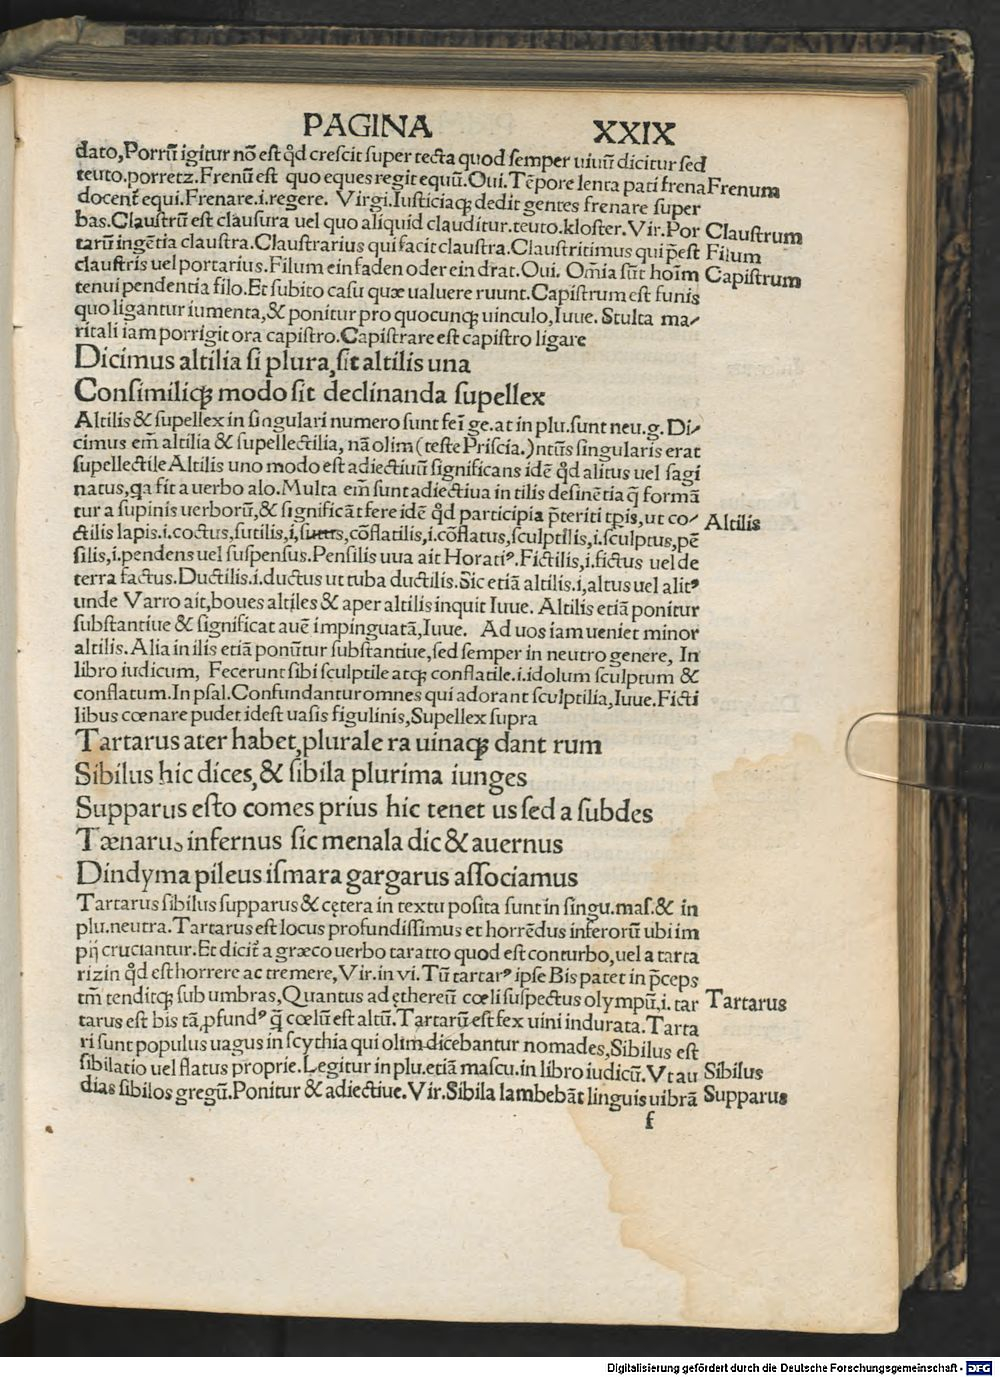 PAGINA XXIX
dato,Porrū igitur nō eſt qd̄ creſcit ſuper tecta quod ſemper uiuū dicitur ſed
teuto.porretz.Frenū eſt quo eques regit equū.Oui.Tēpore lenta pati frena Frenum
docent̄ equi.Frenare.i.regere. Virgi.Iuſticiaqꝫ dedit gentes frenare ſuper
bas.Clauſtrū eſt clauſura uel quo aliquid clauditur.teuto.kloſter.Vir.Por Clauſtrum
tarū ingētia clauſtra.Clauſtrarius qui facit clauſtra.Clauſtritimus qui p̄eſt Filum
clauſtris uel portarius.Filum ein faden oder ein drat.Oui. Om̄ia ſūt hoīm Capiſtrum
tenui pendentia filo.Et ſubito caſu quæ ualuere ruunt.Capiſtrum eſt funis
quo ligantur iumenta,& ponitur pro quocunqꝫ uinculo,Iuue. Stulta ma⸗
ritali iam porrigit ora capiſtro.Capiſtrare eſt capiſtro ligare
Dicimus altilia ſi plura,ſit altilis una
Conſimiliqꝫ modo ſit declinanda ſupellex
Altilis & ſupellex in ſingulari numero ſunt feī ge.at in plu.ſunt neu.g. Di⸗
cimus em̄ altilia & ſupellectilia, nā olim (teſte Priſcia.)ntūs ſingularis erat
ſupellectile Altilis uno modo eſt adiectiuū ſignificans idē qd̄ alitus uel ſagi
natus,qa fit a uerbo alo.Multa em̄ ſunt adiectiua in tilis deſinētia q̄ formā
tur a ſupinis uerborū,& ſignificāt fere idē qd̄ participia p̄teriti tp̄is,ut co⸗ Altilis
ctilis lapis.i.coctus,ſutilis,i,ſutus,cōflatilis,i.cōflatus,ſculptilis,i.ſculptus,pē
ſilis,i.pendens uel ſuſpenſus.Penſilis uua ait Horatiꝰ.Fictilis,i.fictus uel de
terra factus.Ductilis.i.ductus ut tuba ductilis.Sic etiā altilis.i,altus uel alitꝰ
unde Varro ait,boues altiles & aper altilis inquit Iuue. Altilis etiā ponitur
ſubſtantiue & ſignificat auē impinguatā,Iuue. Ad uos iam ueniet minor
altilis.Alia in ilis etiā ponūtur ſubſtantiue,ſed ſemper in neutro genere, In
libro iudicum, Fecerunt ſibi ſculptile atqꝫ conflatile.i.idolum ſculptum &
conflatum.In pſal.Confundantur omnes qui adorant ſculptilia,Iuue.Ficti
libus cœnare pudet ideſt uaſis figulinis,Supellex ſupra
Tartarus ater habet,plurale ra uinaqꝫ dant rum
Sibilus hic dices,& ſibila plurima iunges
Supparus eſto comes prius hic tenet us ſed a ſubdes
Tænarus infernus ſic menala dic & auernus
Dindyma pileus iſmara gargarus aſſociamus
Tartarus ſibilus ſupparus & cętera in textu poſita ſunt in ſingu.maſ.& in
plu.neutra.Tartarus eſt locus profundiſſimus et horrēdus inferorū ubi im
pij cruciantur.Et dicit̄ a græco uerbo taratto quod eſt conturbo,uel a tarta
rizin qd̄ eſt horrere ac tremere,Vir.in vi.Tū tartarꝰ ipſe Bis patet in p̄ceps
tm̄ tenditqꝫ ſub umbras,Quantus ad ęthereū cœli ſuſpectus olympū,i.tar Tartarus
tarus eſt bis tā,pfundꝰ q̄ cœlū eſt altū.Tartarū eſt fex uini indurata.Tarta
ri ſunt populus uagus in ſcythia qui olim dicebantur nomades,Sibilus eſt
ſibilatio uel flatus proprie.Legitur in plu.etiā maſcu.in libro iudicū.Vt au Sibilus
dias ſibilos gregū.Ponitur & adiectiue.Vir.Sibila lambebāt linguis uibrā Supparus
f
Digitalisierung gefördert durch die Deutsche Forschungsgemeinschaft - DFG